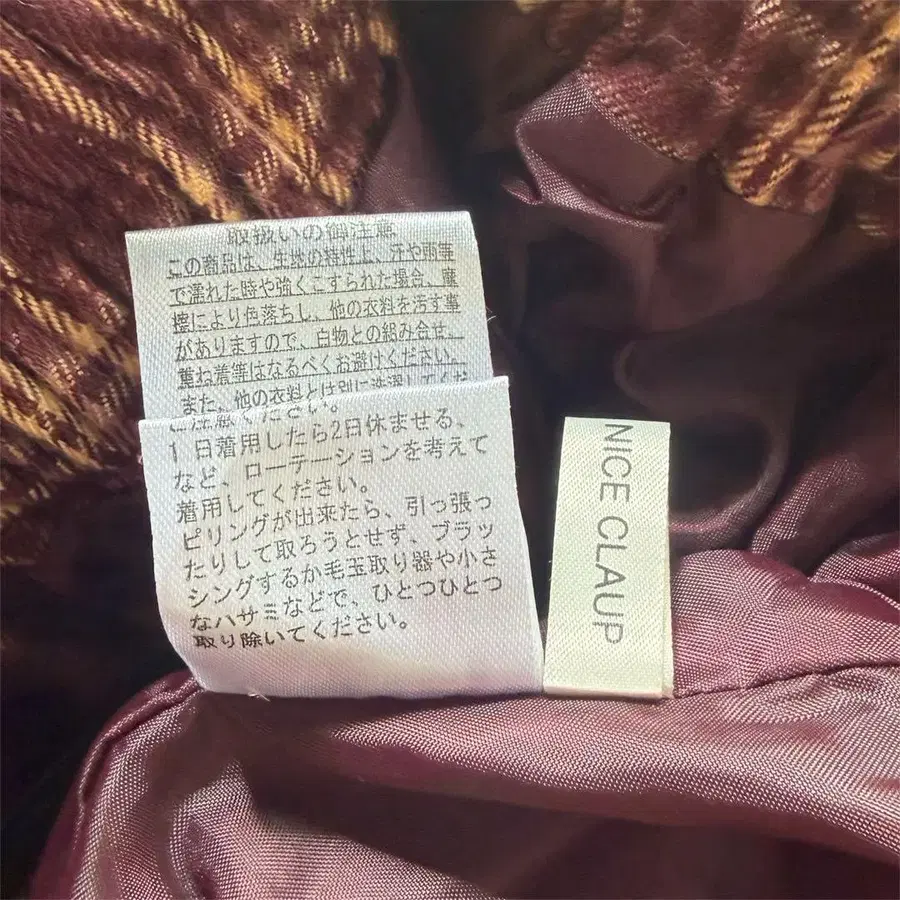 取扱いの御注意
この商品は、生地の特性上、汗や雨等
で濡れた時や強くこすられた場合、摩
擦により色落ちし、他の衣料を汚す事
がありますので、白物との組み合せ、
重ね着等はなるべくお避けください。
また、他の衣料とは別に洗濯してくだ
ください。
1日着用したら2日休ませる、
など、ローテーションを考えて
着用してください。
ピリングが出来たら、引っ張っ
たりして取ろうとせず、ブラッ
シングするか毛玉取り器や小さ
なハサミなどで、ひとつひとつ
取り除いてください。
NICE CLAUP